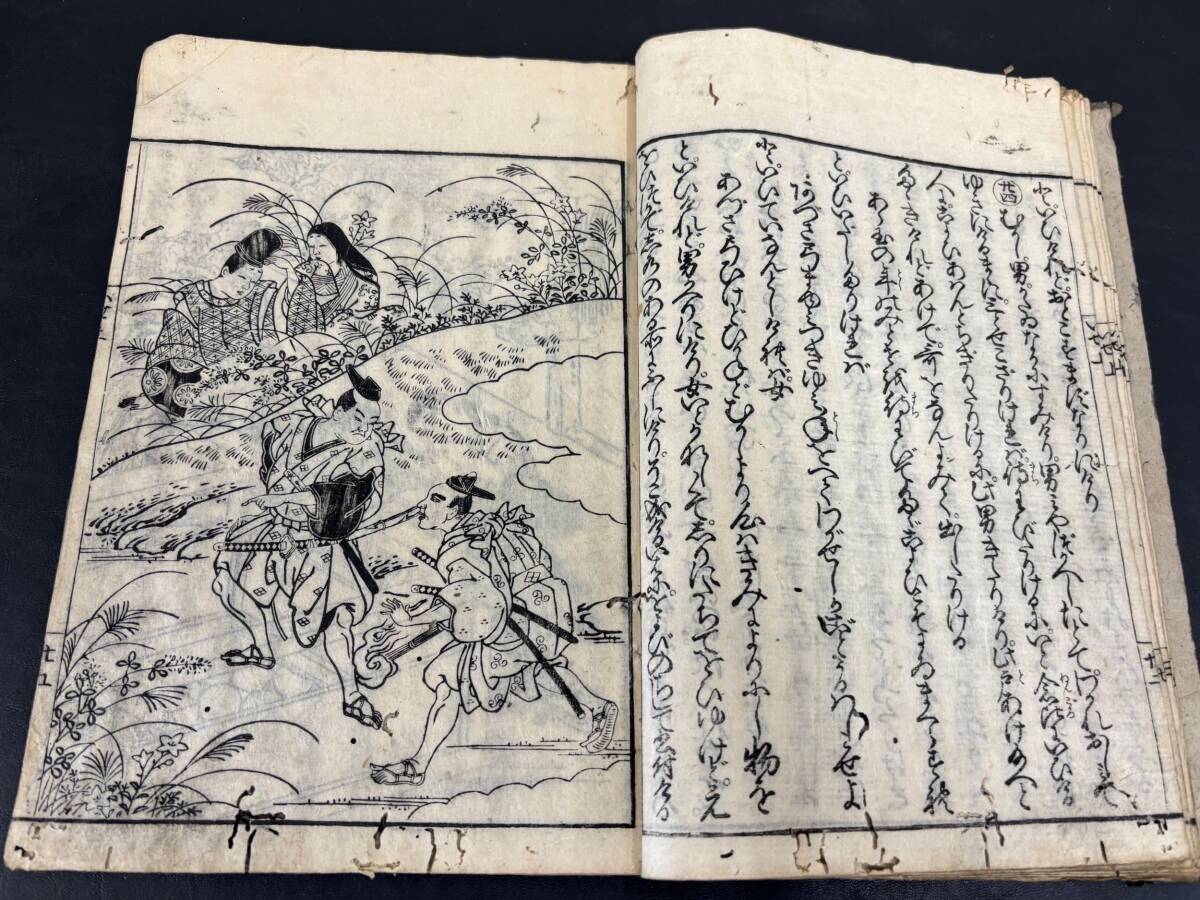 といひけれどおとこすまずなりにけり
廿四 むかし男かたゐなかにすみけり男宮づかへしにとてわかれおしみて
ゆきにけるまゝに三とせこざりければ待わびたりけるにいと念比にいひける
人にこよひあはんとちぎりたりけるに此男きたりけり此戸あけ給へと
たゝきけれどあけで哥をなんよみて出したりける
あら玉の年のみとせを待わびてたゞこよひこそにゐまくらすれ
といひいだしたりければ
あづさ弓まゆみつきゆみ年をへてわがせしがごとうるはしみせよ
といひていなんとしければ女
あづさ弓ひけどひかねどむかしより心はきみによりにし物を
といひけれど男かへりにけり女いとかなしくてしりにたちてをひゆけどえ
をひつかでし水のある所にふしにけりそこ成けるいはにおよびのちして書付ける